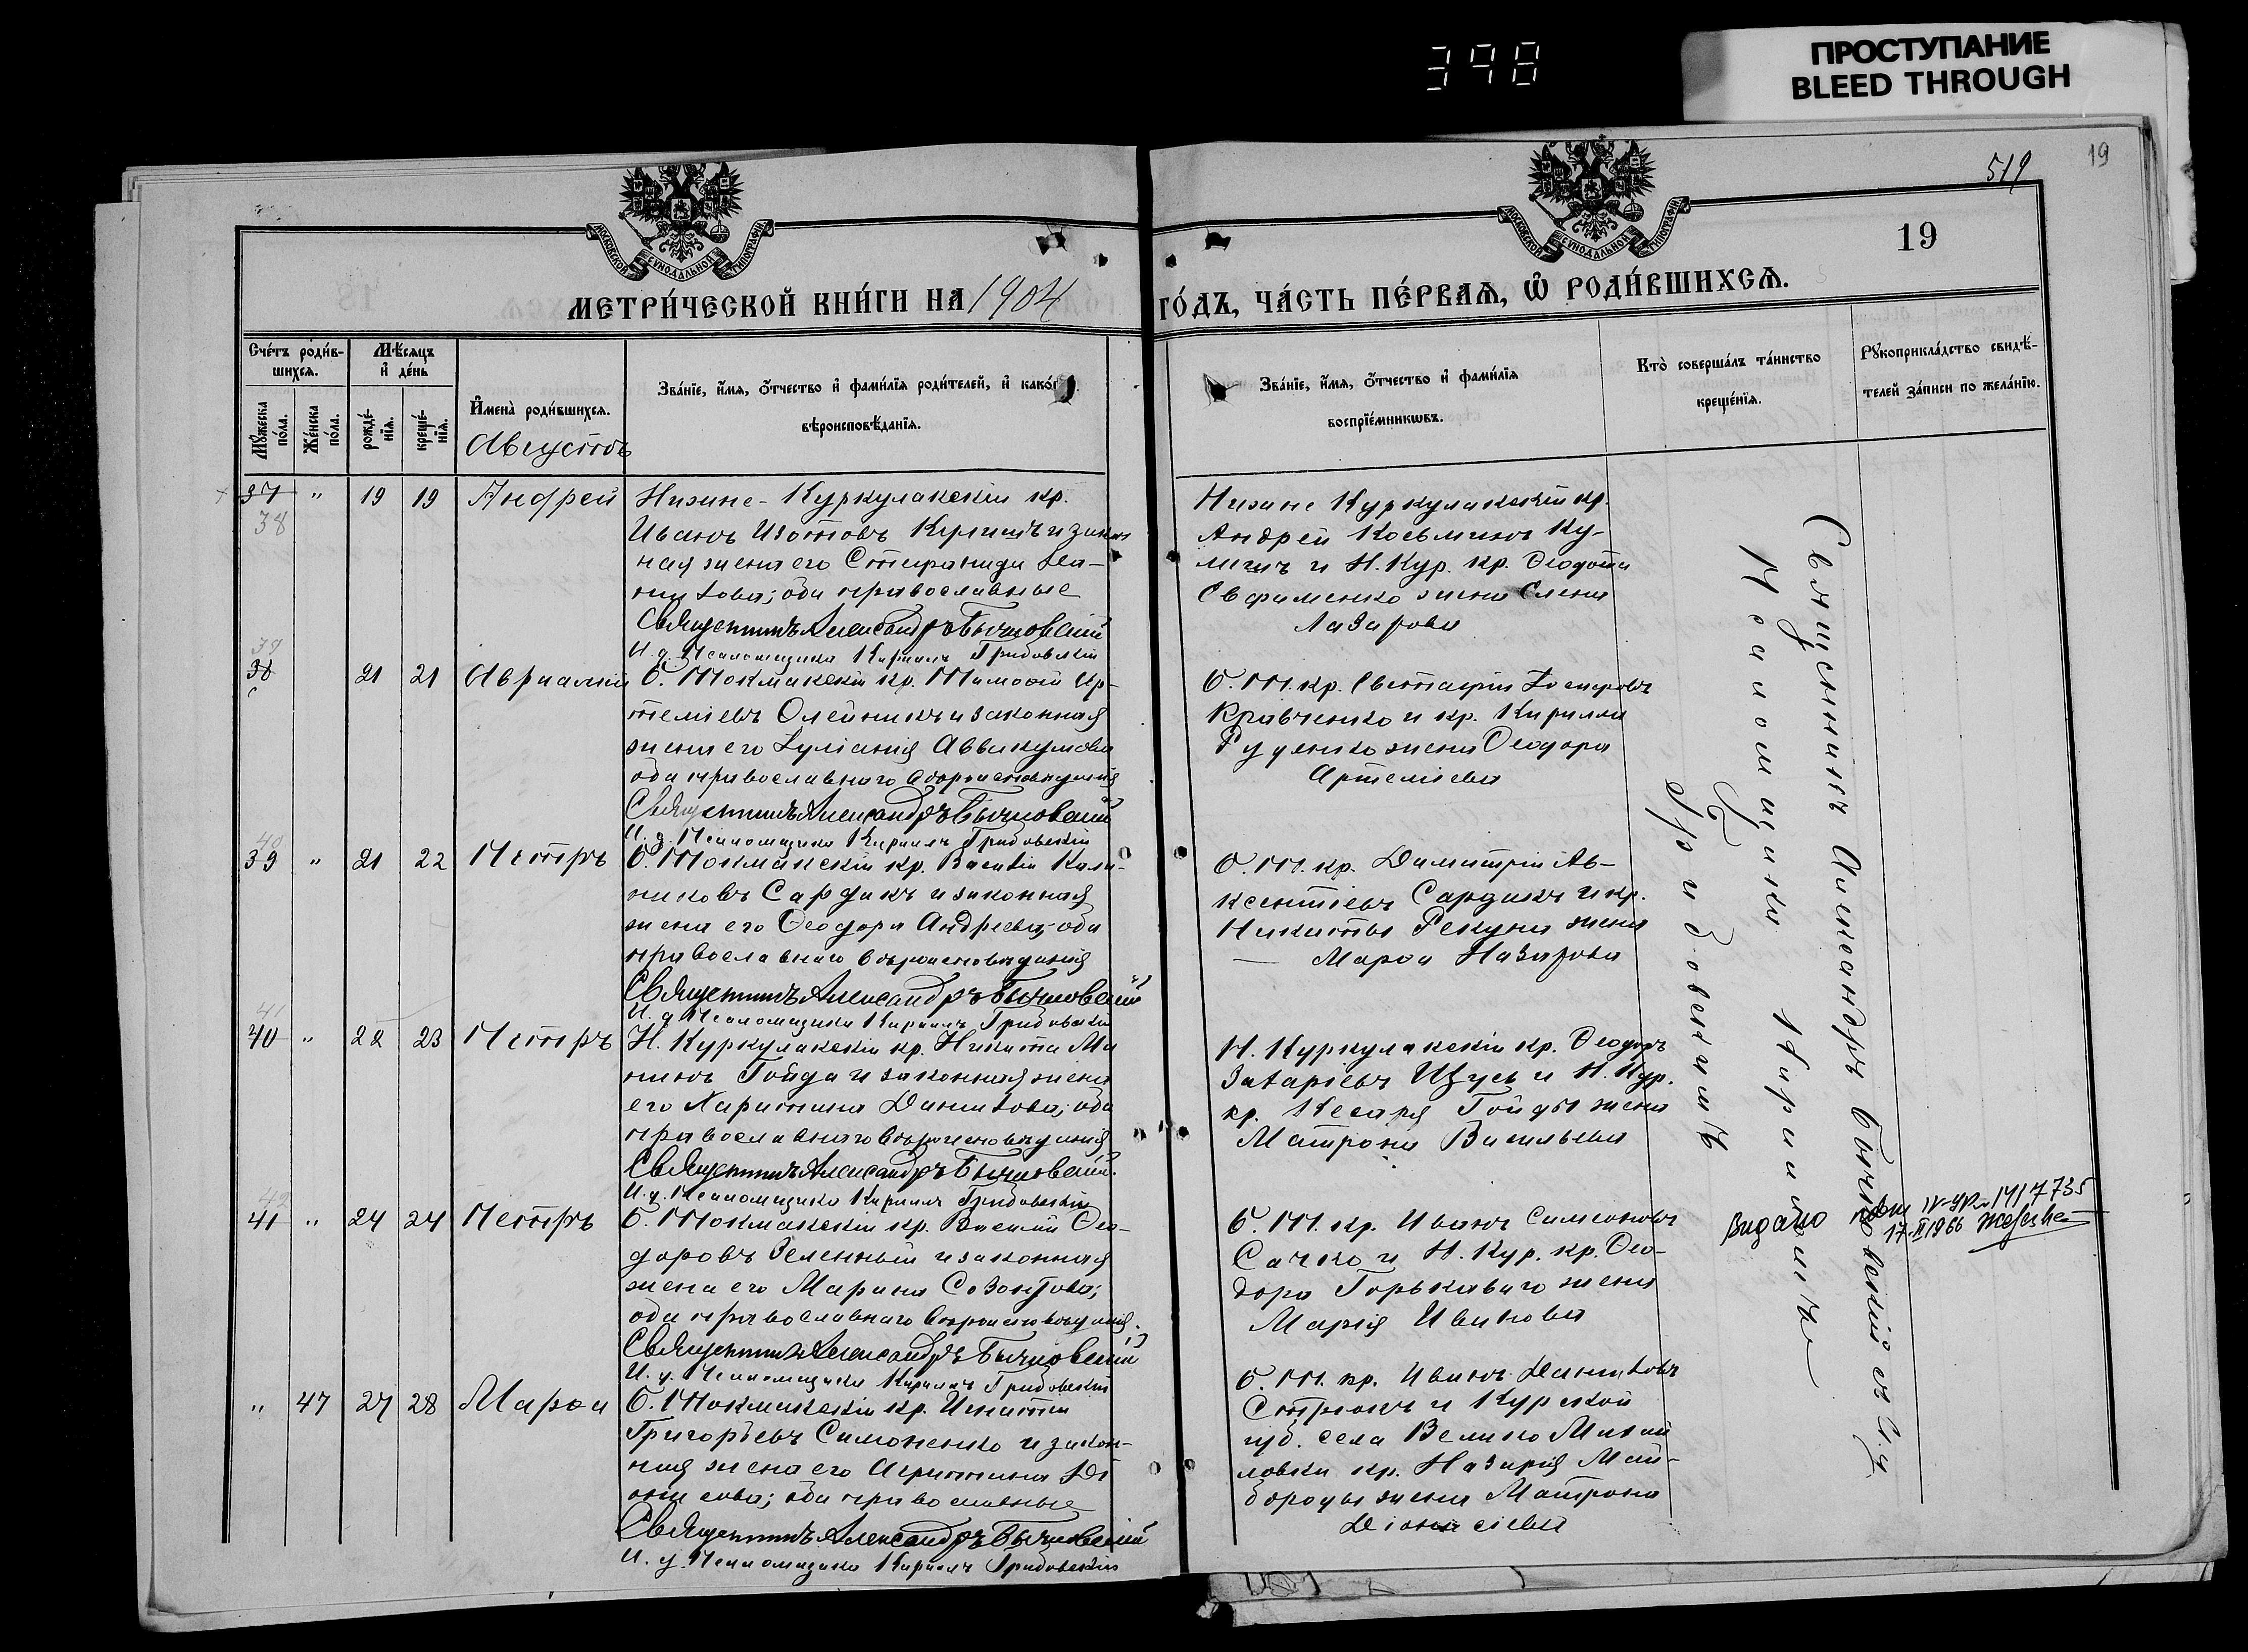 398
ПРОСТУПАНИЕ
BLEED THROUGH
519
19
19
МОСКОВСКОЙ СѴНОДАЛЬНОЙ ТИПОГРАФІИ
МОСКОВСКОЙ СѴНОДАЛЬНОЙ ТИПОГРАФІИ
МЕТРИ́ЧЕСКОЙ КНИ́ГИ НА 1904 ГО́ДЪ, ЧА́СТЬ ПЕ́РВАѦ, Ѡ РОДИ́ВШИХСѦ.
Сче́тъ роди́в-
шихсѧ.
Мꙋжеска по́ла.
Же́нска по́ла.
Мѣ́сѧцъ и де́нь
рожде́-нїѧ.
креще́-нїѧ.
И҆мена̀ роди́вшихсѧ.
Августъ
Зва́нїе, и҆́мѧ, ѻ҆́тчество и҆ фами́лїѧ роди́телей, и҆ како́гѡ
вѣроисповѣ́данїѧ.
Зва́нїе, и҆́мѧ, ѻ҆́тчество и҆ фами́лїѧ
воспрїе́мникѡвъ.
Кто̀ соверша́лъ та́инство
креще́нїѧ.
Рꙋкоприкла́дство свидѣ́-
телей за́писи по жела́нїю.
37 " 19 19 Андрей
38
Нижне-Куркулакскій кр.
Иванъ Изотовъ Кулишъ и закон
ная жена его Стефанида Да-
нилова; оба православные
Священникъ Александръ Бычковскій
И. д. Псаломщика Кириллъ Грибовскій
Нижне Куркулакскій кр.
Андрей Косьминъ Ку-
лишъ и Н. Кур. кр. Ѳеодота
Евфименко жена Елена
Лазарева
39
38 21 21 Авраамій
Б. Токмакскій кр. Тимоѳей Ар-
теміевъ Олейникъ и законная
жена его Іуліанія Аввакумова
оба православнаго вѣроисповѣданія
Священникъ Александръ Бычковскій
И. д. Псаломщика Кириллъ Грибовскій
Б. Т. кр. Евстафій Іосифовъ
Кравченко и кр. Кирилла
Руденко жена Ѳеодора
Артеміева
40
39 " 21 22 Петръ
Б. Токмакскій кр. Василій Кали-
никовъ Сардакъ и законная
жена его Ѳеодора Андреева; оба
православнаго вѣроисповѣданія
Священникъ Александръ Бычковскій
И. д. Псаломщика Кириллъ Грибовскій
Б. Т. кр. Димитрій Ав-
ксентіевъ Сардакъ и кр.
Никиты Рекуна жена
Марѳа Назарова
41
40 " 22 23 Петръ
Н. Куркулакскій кр. Никита Ми
нинъ Гойда и законная жена
его Харитина Данилова; оба
православнаго вѣроисповѣданія
Священникъ Александръ Бычковскій
И. д. Псаломщика Кириллъ Грибовскій
Н. Куркулакскій кр. Ѳеодоръ
Захаріевъ и Н. Кур.
кр. Кесаря Гойды жена
Матрона Васильева
42
41 " 24 24 Петръ
Б. Токмакскій кр. Василій Ѳео-
доровъ Зеленный и законная
жена его Марина Созонтова;
оба православнаго вѣроисповѣданія.
Священникъ Александръ Бычковскій
И. д. Псаломщика Кириллъ Грибовскій
Б. Т. кр. Иванъ Симеоновъ
Сачко и Н. Кур. кр. Ѳео-
дора Горькаваго жена
Марія Иванова
Видано 1417735
17.II 1966
" 47 27 28 Марѳа
Б. Токмакскій кр. Игнатій
Григорьевъ Симоненко и закон-
ная жена его Агриппина Ді
онисова; оба православные
Священникъ Александръ Бычковскій
И. д. Псаломщика Кириллъ Грибовскій
Б. Т. кр. Иванъ Даниловъ
и Курской
губ. села Велико Михай
ловки кр. Назарія Май-
бороды жена Матрона
Діонисіева
Священникъ Александръ Бычковскій съ И. д.
Псаломщика Кирилломъ
Грибовскимъ